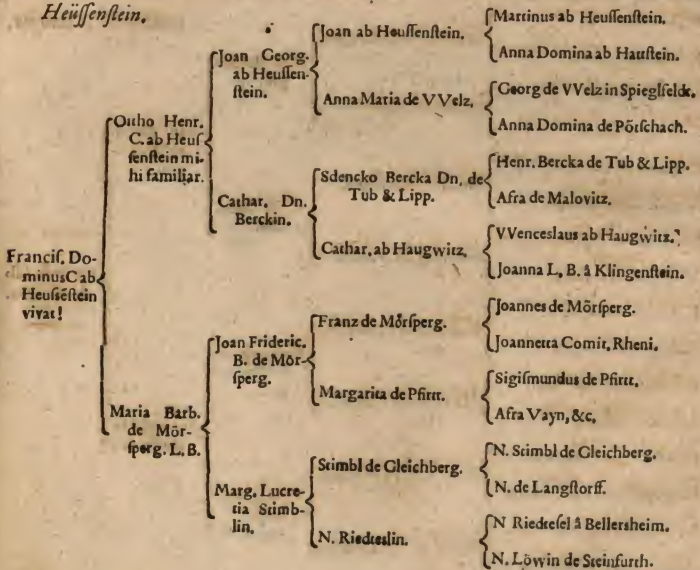 Heüſſenſtein.
Franciſ. Do-
minus C ab
Heuſsēſtein
vivat!
Ottho Henr.
C. ab Heuſ
ſenſtein mi-
hi familiar.
Maria Barb.
de Mör-
ſperg. L. B.
Joan Georg.
ab Heuſſen-
ſtein.
Cathar. Dn.
Berckin.
Joan Frideric.
B. de Mör-
ſperg.
Marg. Lucre-
tia Stimb-
lin.
Joan ab Heuſſenſtein.
Anna Maria de VVelz.
Sdencko Bercka Dn. de
Tub & Lipp.
Cathar. ab Haugwitz.
Franz de Mörſperg.
Margarita de Pfirtt.
Stimbl de Gleichberg.
N. Riedteslin.
Martinus ab Heuſſenſtein.
Anna Domina ab Hauſtein.
Georg de VVelz in Spieglfeldt.
Anna Domina de Pötſchach.
Henr. Bercka de Tub & Lipp.
Afra de Malovitz.
VVenceslaus ab Haugwitz.
Joanna L. B. â Klingenſtein.
Joannes de Mörſperg.
Joannetta Comit. Rheni.
Sigiſmundus de Pfirtt.
Afra Vayn, &c.
N. Stimbl de Gleichberg.
N. de Langſtorff.
N Riedteſel â Bellersheim.
N. Löwin de Steinfurth.